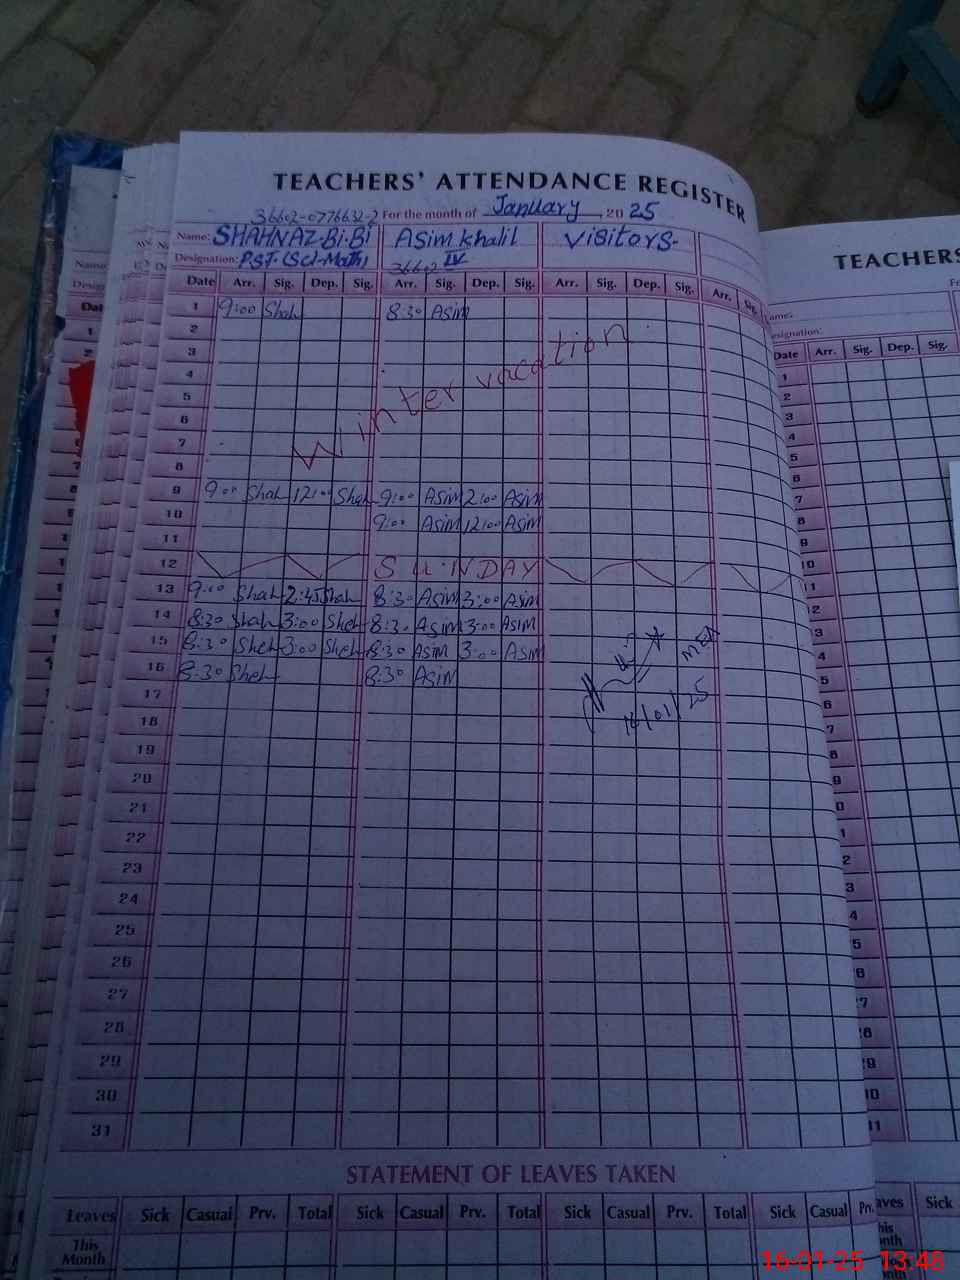 TEACHERS' ATTENDANCE REGISTER
36602-0776632-2 For the month of January 2025
Name: SHAHNAZ-Bi-Bi Asim khalil Visitors-
Designation: P.S.T. (Sci-Math) 36602 IV
Date Arr. Sig. Dep. Sig. Arr. Sig. Dep. Sig. Arr. Sig. Dep. Sig. Arr. Sig.
1 9:00 Shah 8:30 Asim
2
3
4
5
6
7
8
Winter vacation
9 9:00 Shah 12:00 Shah 9:00 Asim 2:00 Asim
10 9:00 Asim 12:00 Asim
11
12 SUNDAY
13 9:00 Shah 2:45 Shah 8:30 Asim 3:00 Asim
14 8:30 Shah 3:00 Sheh 8:30 Asim 3:00 Asim
15 8:30 Sheh 3:00 Sheh 8:30 Asim 3:00 Asim
16 8:30 Sheh 8:30 Asim
MEA
/01/25
17
18
19
20
21
22
23
24
25
26
27
28
29
30
31
STATEMENT OF LEAVES TAKEN
Leaves Sick Casual Prv. Total Sick Casual Prv. Total Sick Casual Prv. Total Sick Casual Prv.
This Month
TEACHERS
Designation:
Date Arr. Sig. Dep. Sig.
1
2
3
4
5
6
7
8
9
10
Sick
16-01-25 13:48